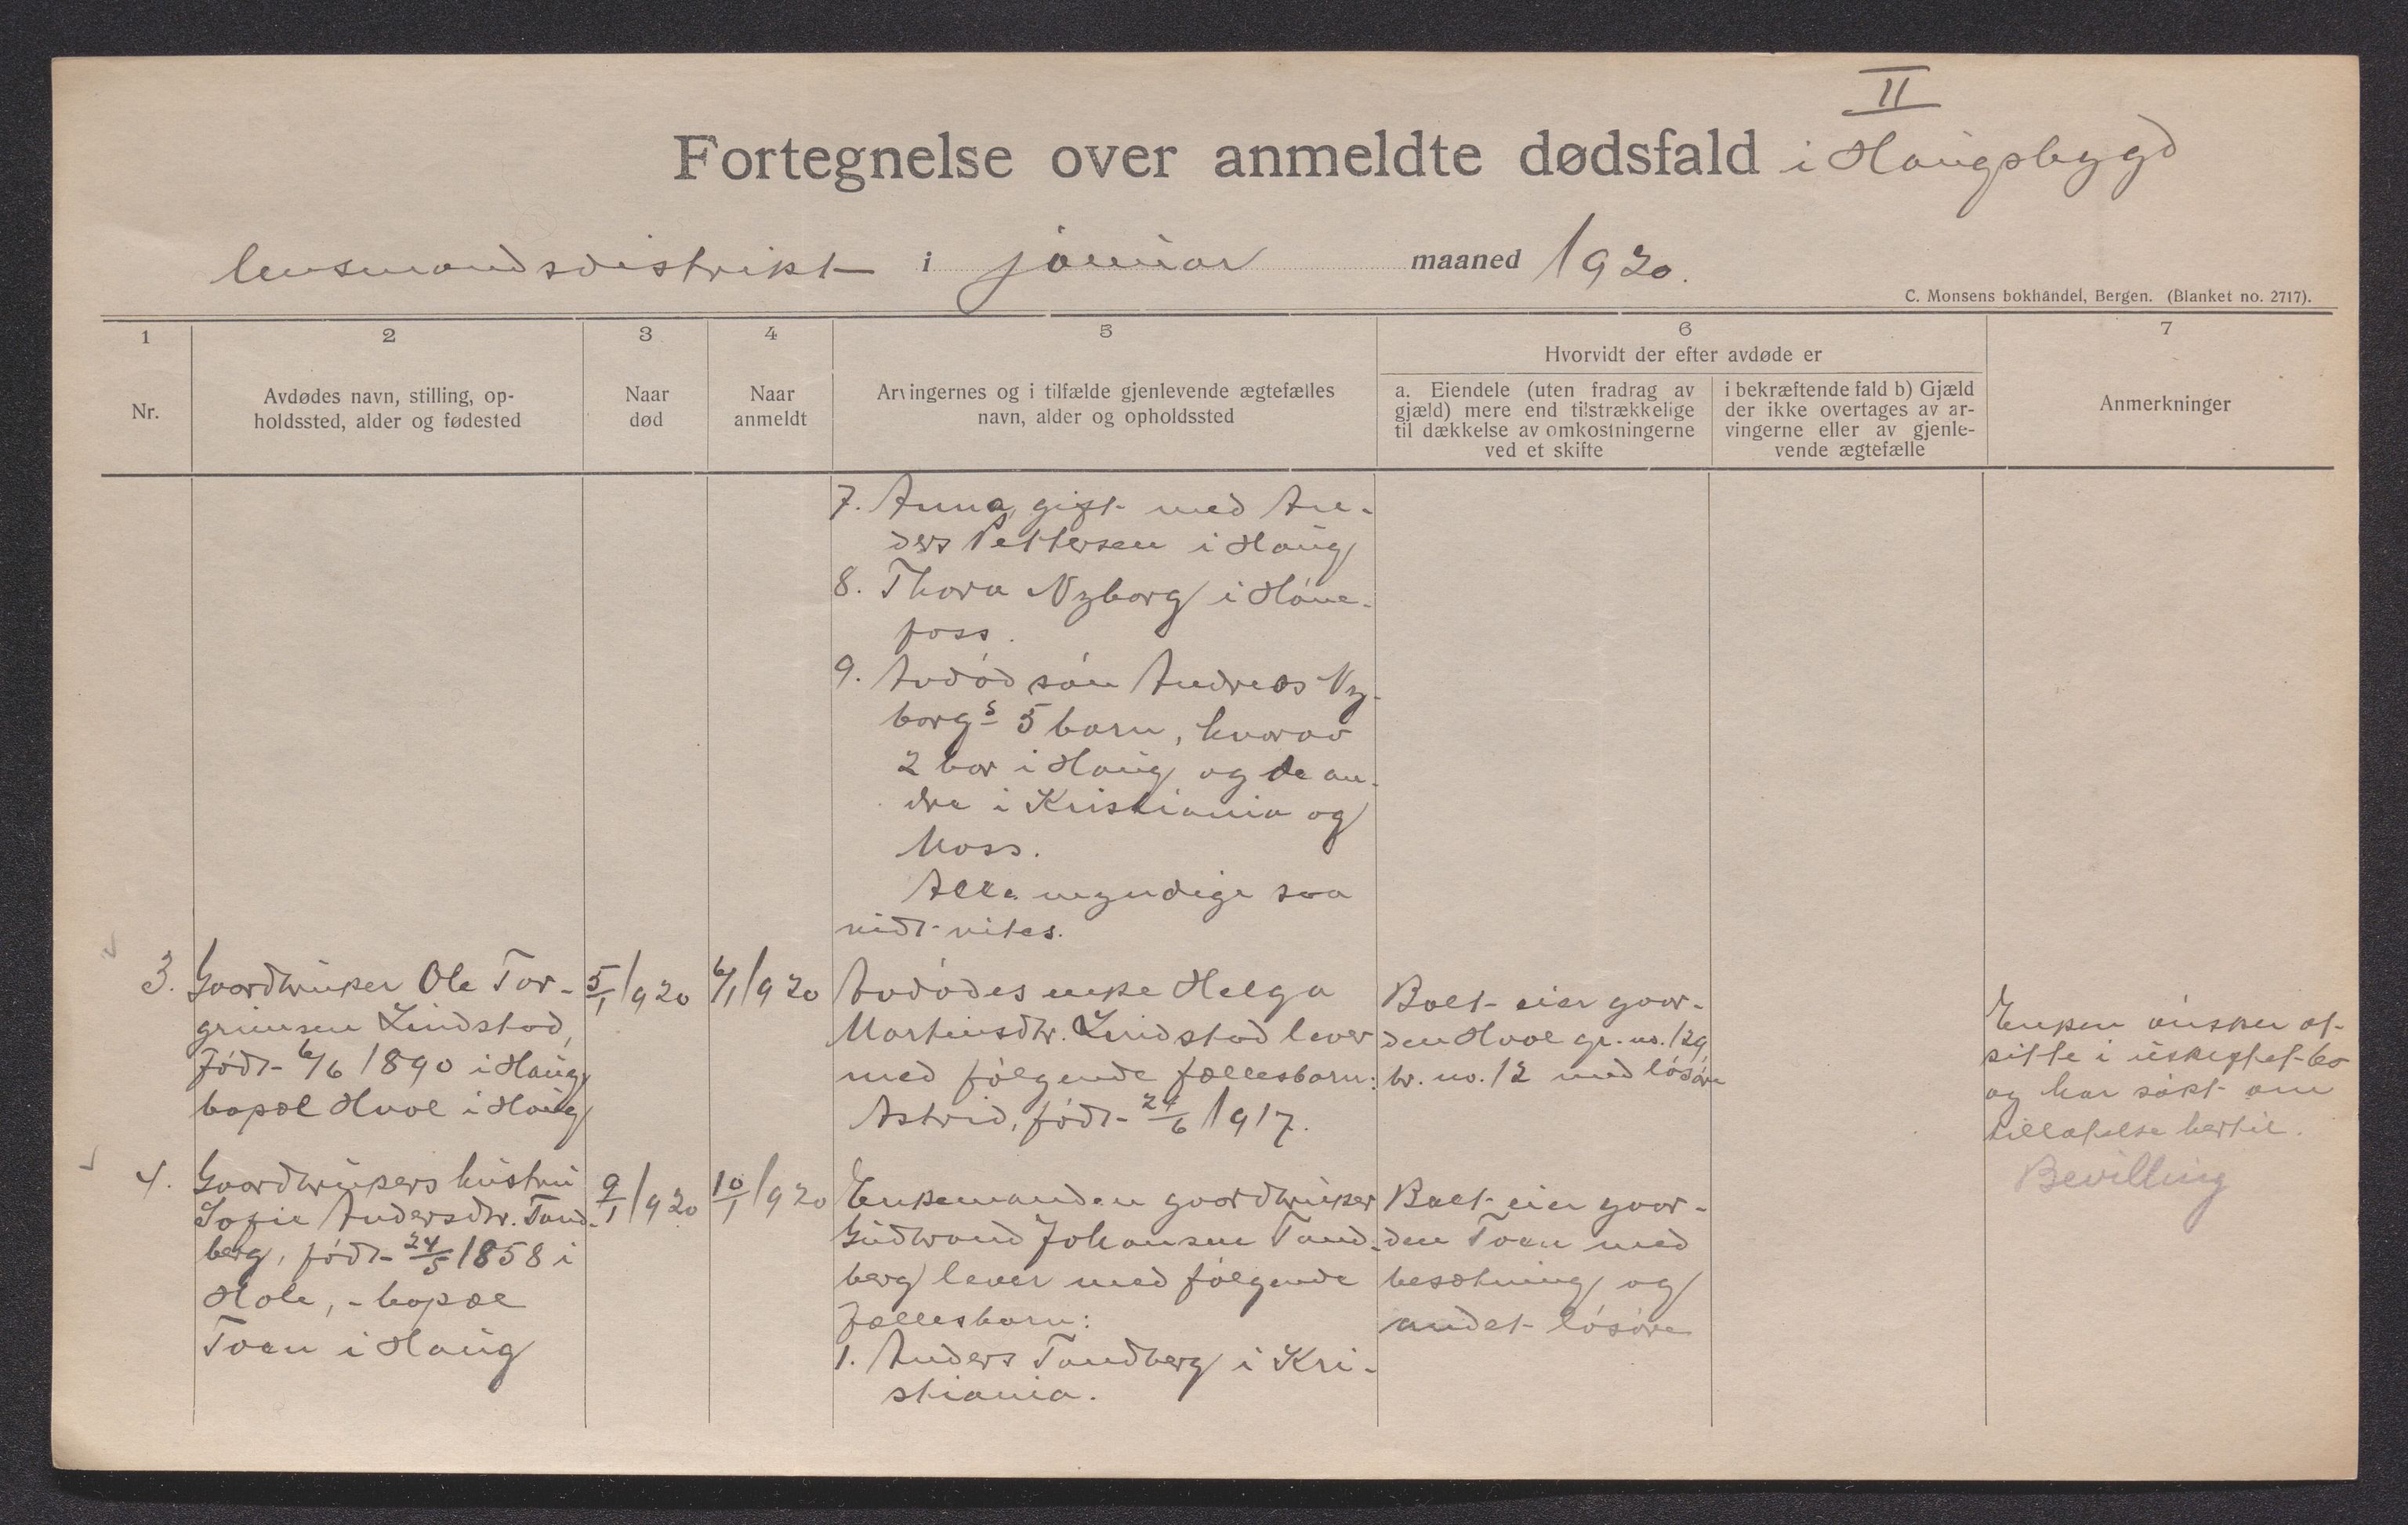 II
Fortegnelse over anmeldte dødsfald i Haugsbygd
lensmandsdistrikt i januar maaned 1920.
C. Monsens bokhandel, Bergen. (Blanket no. 2717).
1
2
3
4
5
6
7
Nr.
Avdødes navn, stilling, op-
holdssted, alder og fødested
Naar
død
Naar
anmeldt
Arvingernes og i tilfælde gjenlevende ægtefælles
navn, alder og opholdssted
Hvorvidt der efter avdøde er
a. Eiendele (uten fradrag av
gjæld) mere end tilstrækkelige
til dækkelse av omkostningerne
ved et skifte
i bekræftende fald b) Gjæld
der ikke overtages av ar-
vingerne eller av gjenle-
vende ægtefælle
Anmerkninger
7. Anna, gift med An-
ders Pettersen i Haug
8. Thora Nyborg i Høne-
foss.
9. Avdød søn Andreas Ny-
borgs 5 barn, hvorav
2 bor i Haug og de an-
dre i Kristiania og
Moss.
Alle myndige saa
vidt vites.
3. Gaardbruker Ole Tor-
grimsen Lindstad,
født 6/6 1890 i Haug,
bopæl Hval i Haug
5/1 1920
6/1 1920
Avdødes enke Helga
Martinsdtr. Lindstad lever
med følgende fællesbarn:
Astrid, født 24/6 1917.
Boet eier gaar-
den Hval gr. no. 129
br. no. 12 med løsøre
Enken ønsker at
sitte i uskiftet bo
og har søkt om
tillatelse hertil.
Bevilling
4. Gaardbrukers hustru
Sofie Andersdtr. Tand-
berg, født 24/5 1858 i
Hole, - bopæl
Toen i Haug
9/1 1920
10/1 1920
Enkemanden gaardbruker
Gudbrand Johansen Tand-
berg lever med følgende
fællesbarn:
1. Anders Tandberg i Kri-
stiania.
Boet eier gaar-
den Toen med
besætning og
andet løsøre